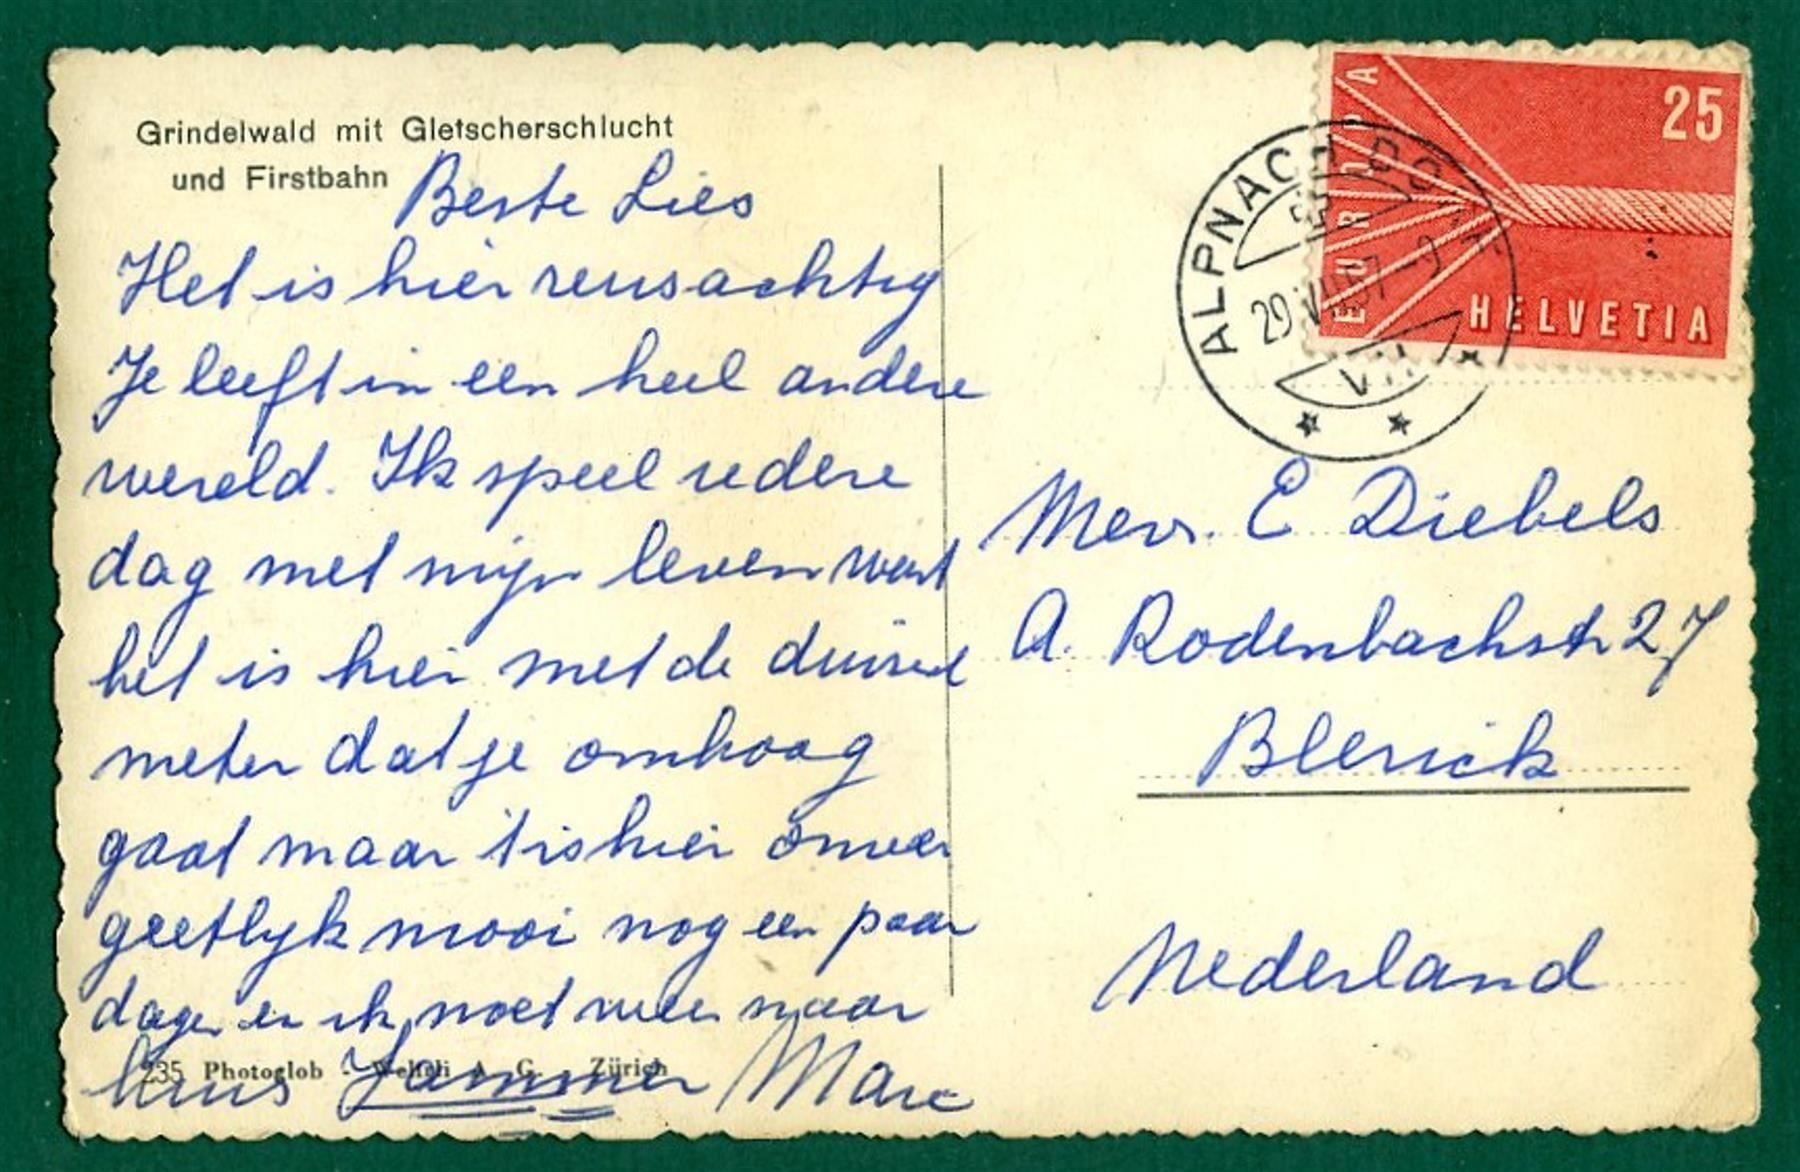 Grindelwald mit Gletscherschlucht
und Firstbahn
Beste Lies
Het is hier reusachtig
Je leeft in een heel andere
wereld. Ik speel iedere
dag met mijn leven want
het is hier met de duizend
meter dat je omhoog
gaat maar 't is hier onver
geetlijk mooi nog een paar
dagen en ik moet weer naar
huis Jammer Marc
235 Photoglob - Wehrli A. G. Zürich
EUROPA
25
HELVETIA
ALPNACH DORF
29 VII 57
Mevr. E Diebels
A. Rodenbachstr 27
Blerick
Nederland